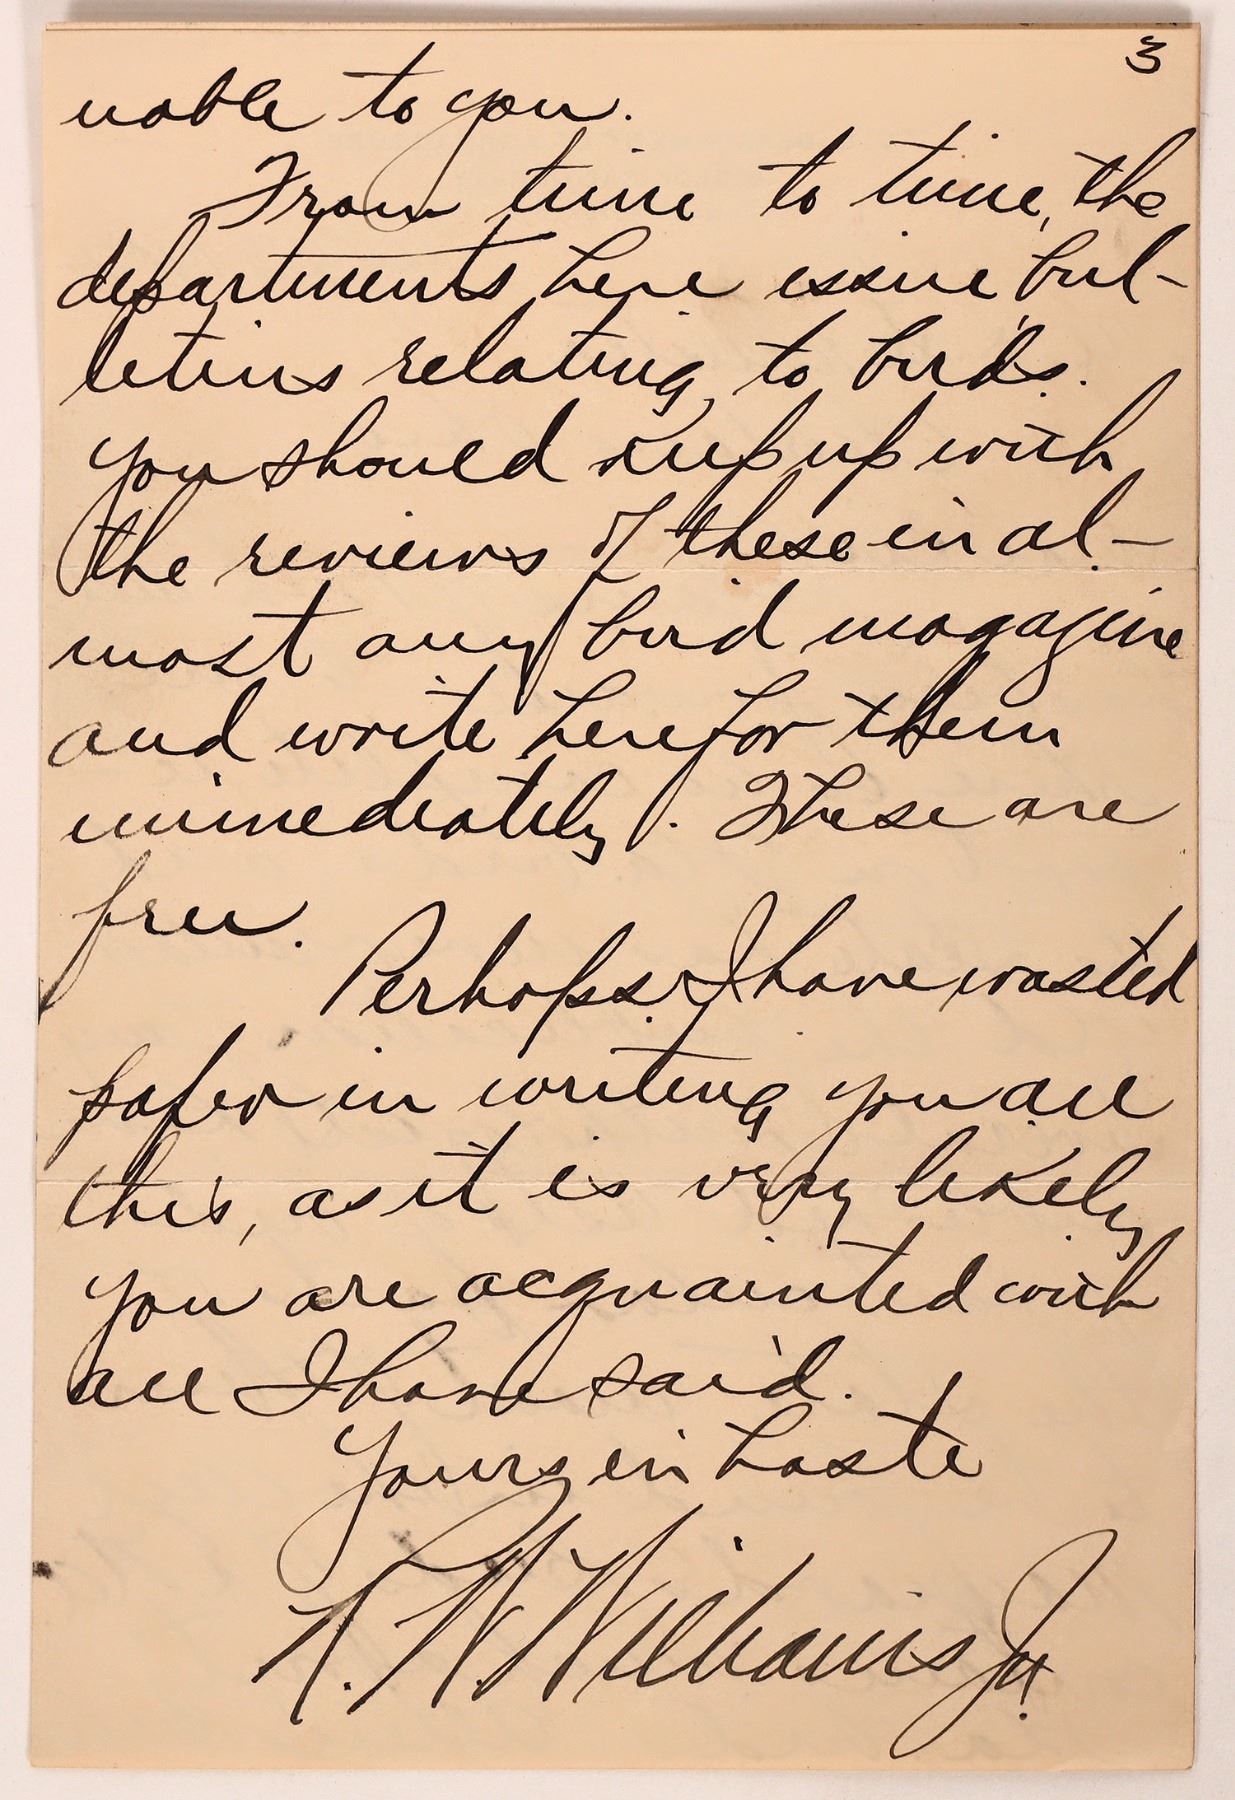 3
uable to you.
From time to time, the
departments here issue bul-
letins relating to birds.
You should keep up with
the reviews of these in al-
most any bird magazine
and write here for them
immediately. These are
free.
Perhaps I have wasted
paper in writing you all
this, as it is very likely
you are acquainted with
all I have said.
Yours in haste
R. W. Williams Jr.